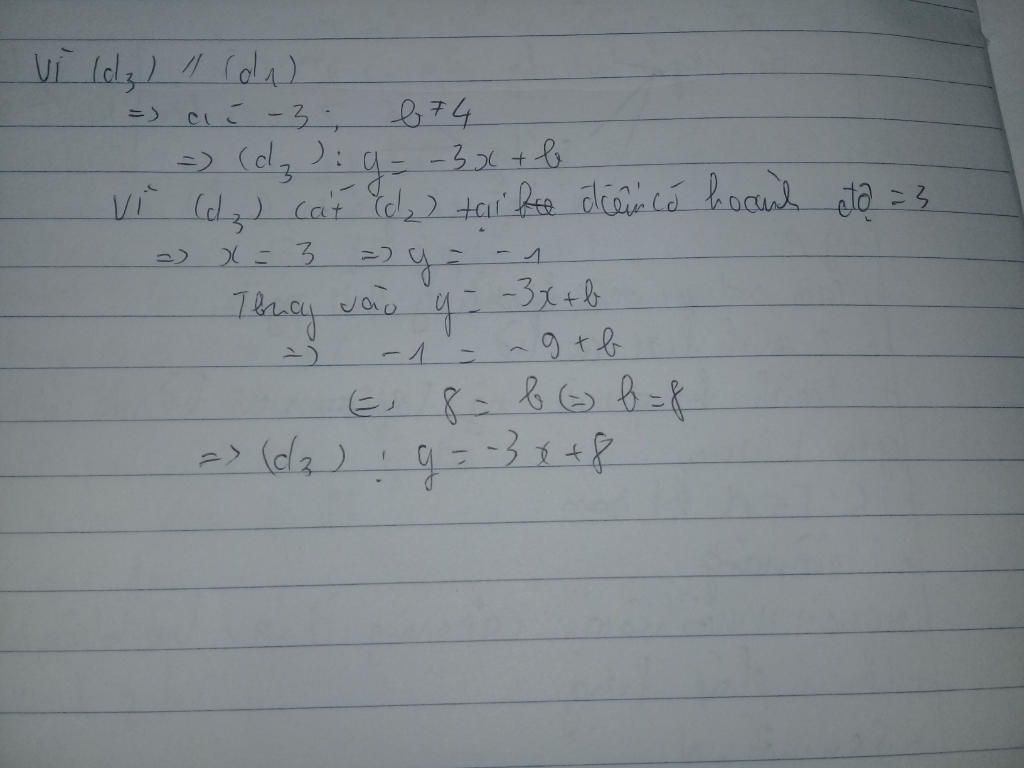 Vì (d₃) // (d₁)
=> a = -3 ; b ≠ 4
=> (d₃) : y = -3x + b
Vì (d₃) cắt (d₂) tại điểm có hoành độ = 3
=> x = 3 => y = -1
Thay vào y = -3x + b
=> -1 = -9 + b
<=> 8 = b <=> b = 8
=> (d₃) : y = -3x + 8